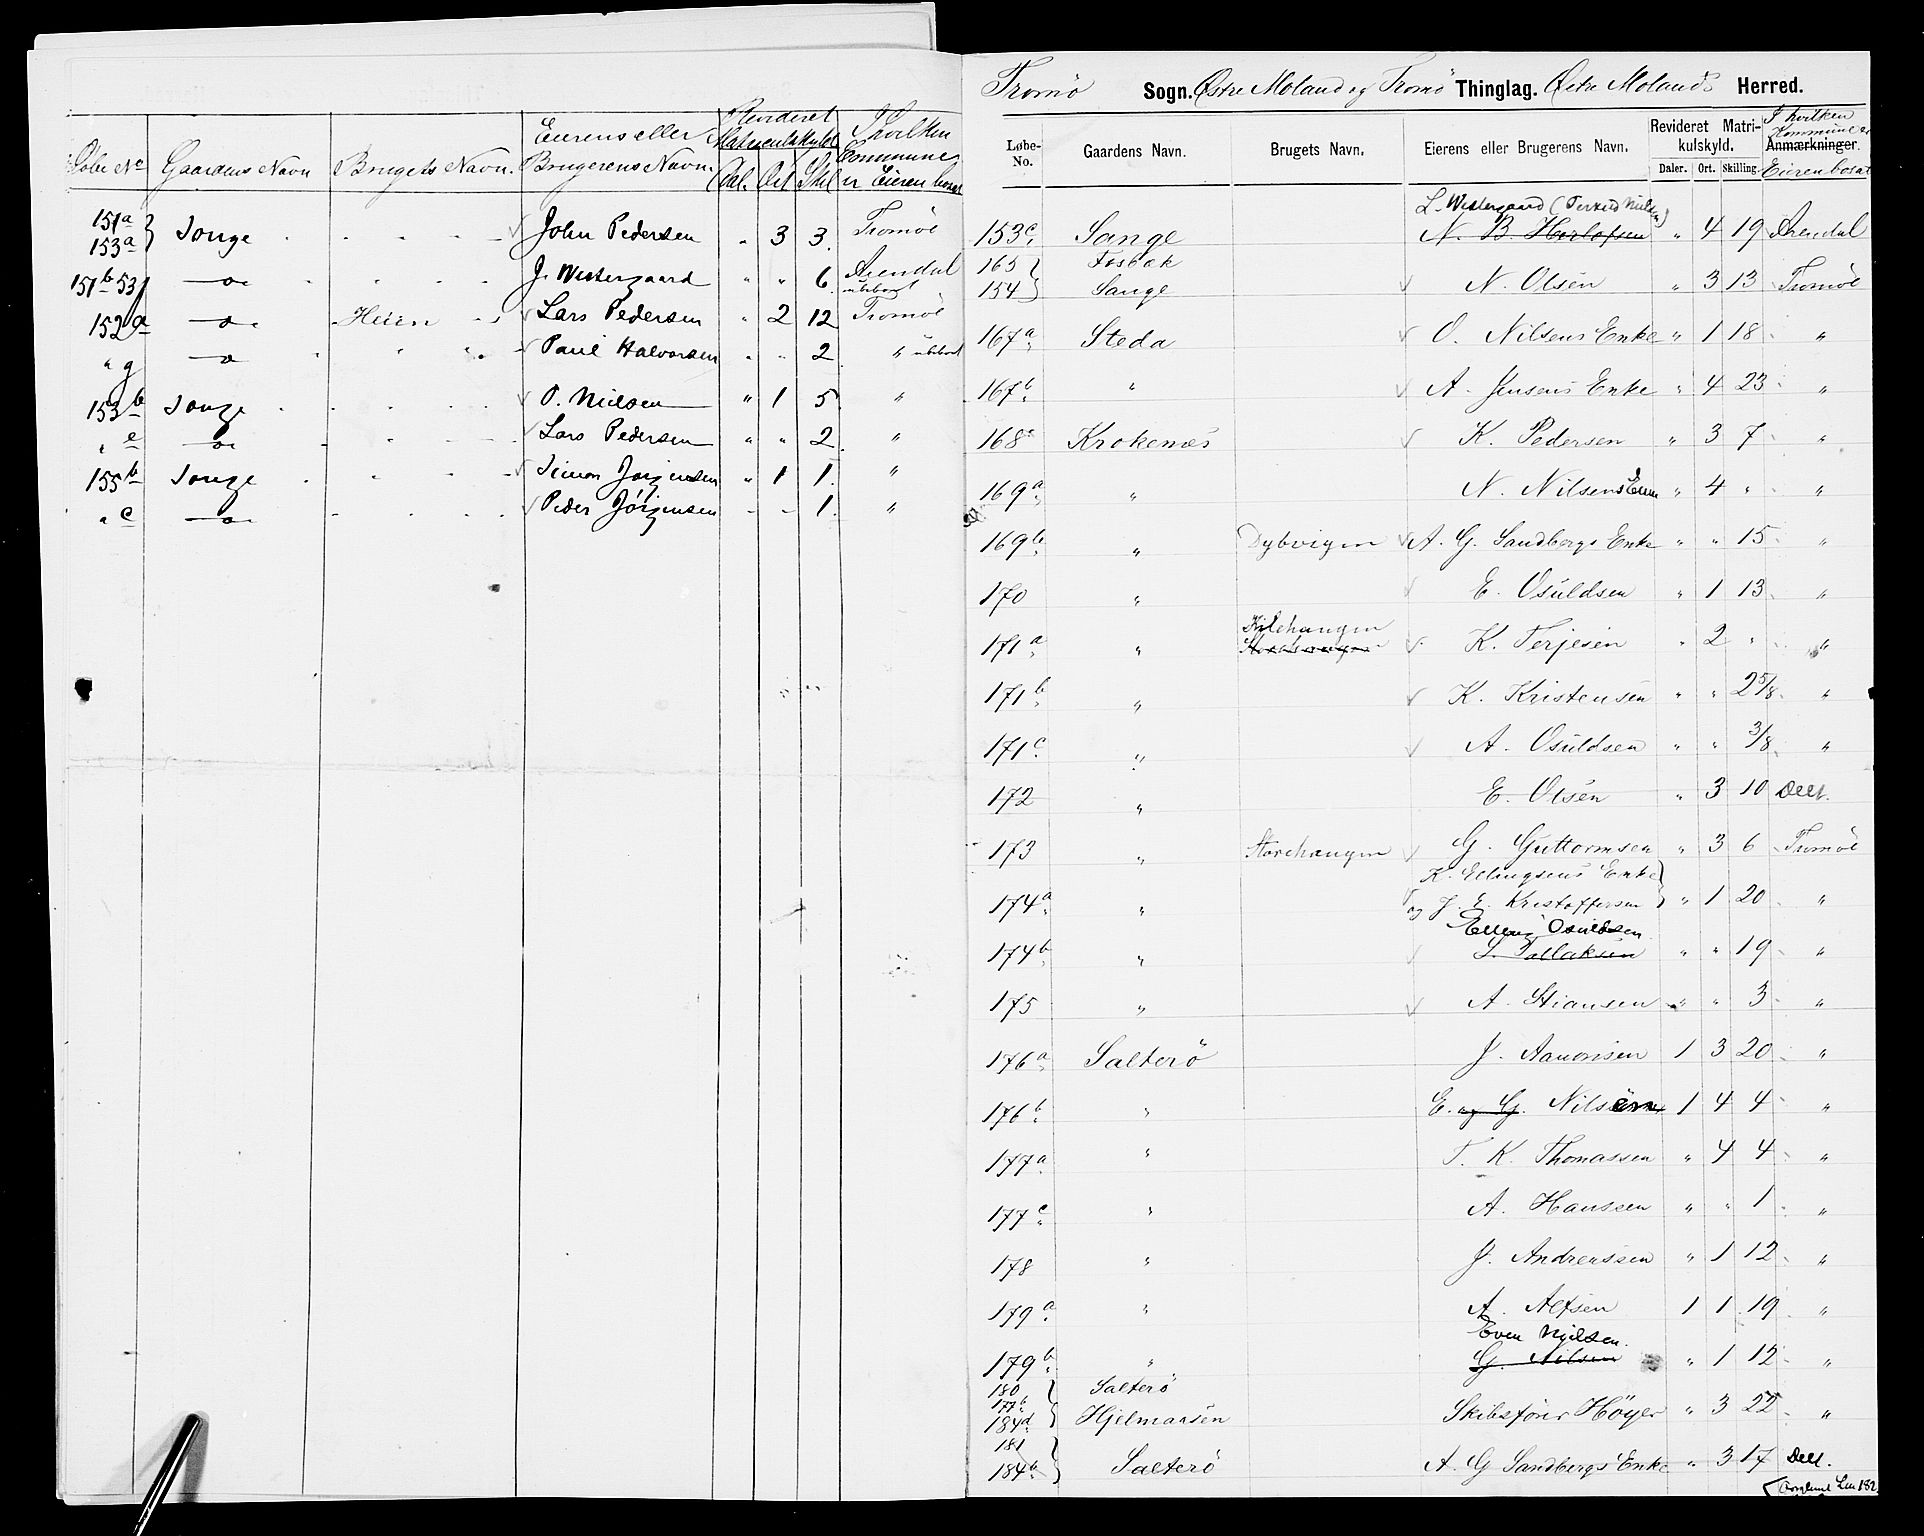 Revideret
Eierens eller Matriculskyld I hvilken
Løbe No Gaardens Navn Brugets Navn. Brugerens Navn. Dal. Ort Skil Commune er Eieren bosat
151a 153a } Songe John Pedersen " 3 3. Tromöe
151b 53f —"— J. Westergaard " " 6. Arendal ubebout
152a —"— Heien Lars Pedersen " 2 12 Tromöe
" g —"— Paul Halvorsen " " 2 " ubebout
153b Songe O. Nielsen " 1 5 "
" e —"— Lars Pedersen " " 2 "
155b Songe Simon Jørgensen " 1 1. "
" c —"— Peder Jørgensen - - 1. "
Tromö Sogn. Östre Moland og Tromö Thinglag. Östre Molands Herred.
Løbe-No. Gaardens Navn. Brugets Navn. Eierens eller Brugerens Navn. Revideret Matrikulskyld. I hvilken Kommune er
Anmærkninger.
Daler. Ort. Skilling. Eieren bosat
L. Westergaard (Terkild Nielsen)
153c Sange N. B. Herlofsen " 4 19 Arendal
165 } Fosbæk
154 } Sange N. Olsen " 3 13 Tromöe
167a Steda O. Nilsens Enke " 1 18 "
167b " A. Jensens Enke " 4 23 "
168a Krokenæs K. Pedersen " 3 7 "
169a " N. Nilsens Enke " 4 " "
169b " Dybvigen A. G. Sandbergs Enke " " 15 "
170 " E. Osuldsen " 1 13 "
Kilehaugen
171a " Storehaugen K. Terjesen " 2 " "
171b " K. Kristensen " " 2 5/8 "
171c " A. Osuldsen " " 3/8 "
172 " E. Olsen " 3 10 Dell.
173 " Storehaugen G. Guttormsen " 3 6 Tromöe
K. Ellingsens Enke }
174a " og J. E. Kristoffersen } " 1 20 "
Elling Osuldsen
174b " S. Tallaksen " " 19 "
175 " A. Stiansen " " 3 "
176a Salterö J. Aanonsen 1 3 20 "
176b " E. og G. Nilsen 1 4 4 "
177a " T. K. Thomassen " 4 4 "
177c " A. Hanssen " " 1 "
178 " J. Andreassen " 1 12 "
179a " A. Alfsen 1 1 19 "
Even Nielsen.
179b " G. Nilsen " 1 12 "
180 } Salterö
177b
184d } Hjelmaasen Skibsfører Höyer " 3 22 "
181 }
184b } Salterö A. G Sandbergs Enke " 3 17 Dell.